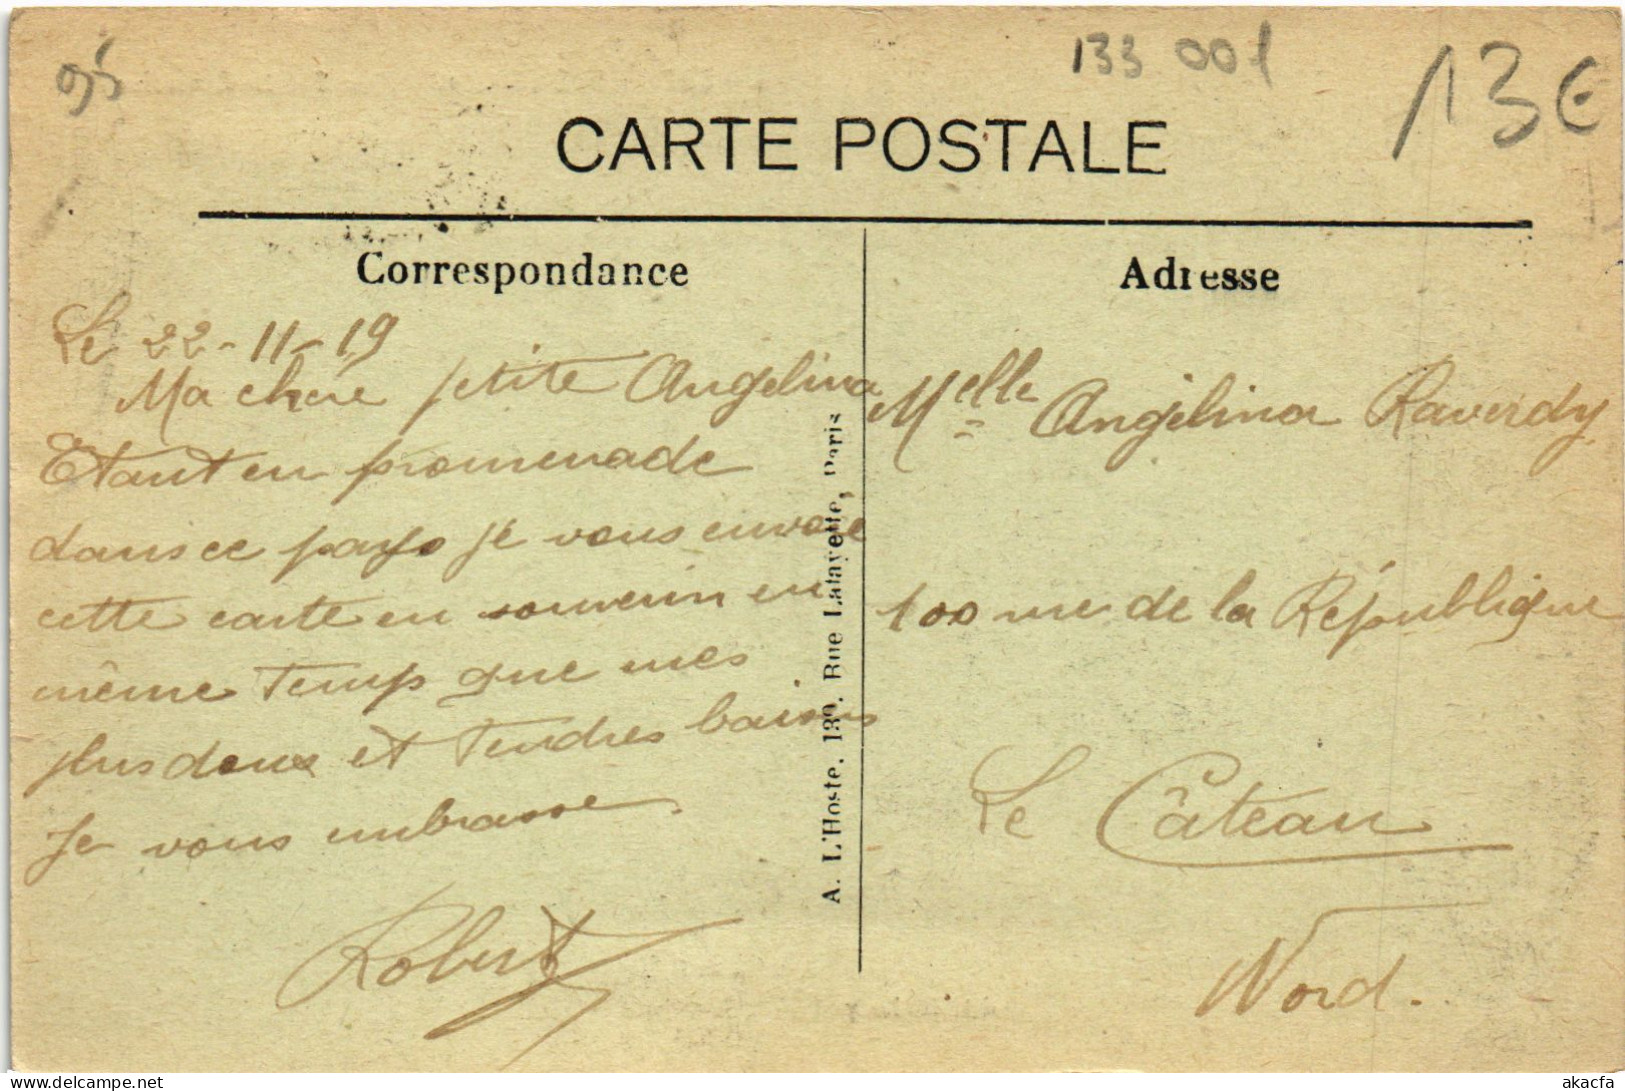 95
133 001
13€
CARTE POSTALE
Correspondance
Adresse
Le 22-11-19
Ma chère petite Angelina
Etant en promenade
dans ce pays je vous envoie
cette carte en souvenir en
même temp que mes
plus doux et tendres baisers
Je vous embrasse.
Robert
A. L'Hoste, 139, Rue Lafayette, Paris
Melle Angèlina Raverdy
100 rue de la République
Le Câteau
Nord.
delcampe.net
akacfa